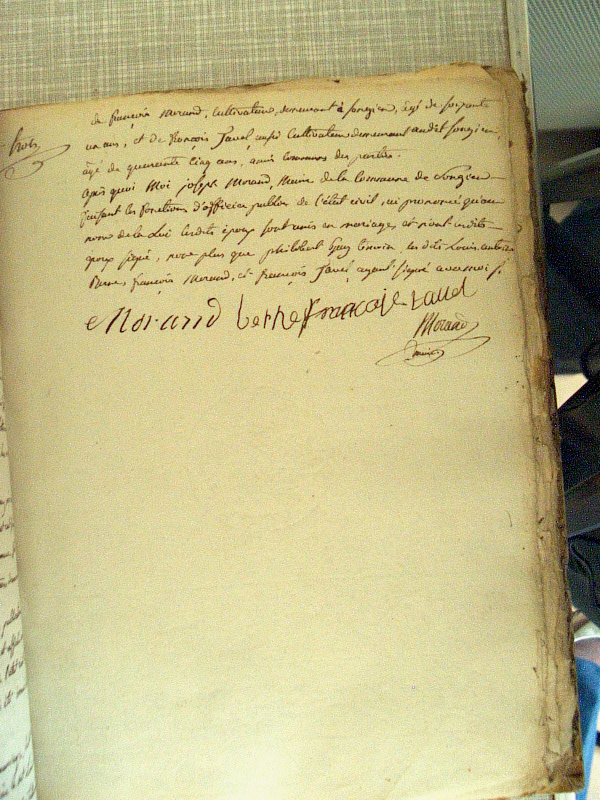 trois
de françois morand, cultivateur, demeurant à songieu, agé de soixante
un ans, et de françois Tavel aussi Cultivateur demeurant audit songieu,
agé de quarente cinq ans, amis communs des parties.
après quoi Moi joseph Morand, Maire de la Commune de Songieu
faisant les fonctions d'officier public de l'état civil, ai prononcé qu'au
nom de la Loi lesdits époux sont unis en mariage, et n'ont lesdits
époux signé, non plus que philibert Guy témoin, lesdits Louis
françois Morand, et francois Tavel ayant signé avec moi
Morand berthet francoise tavel
Morand
maire